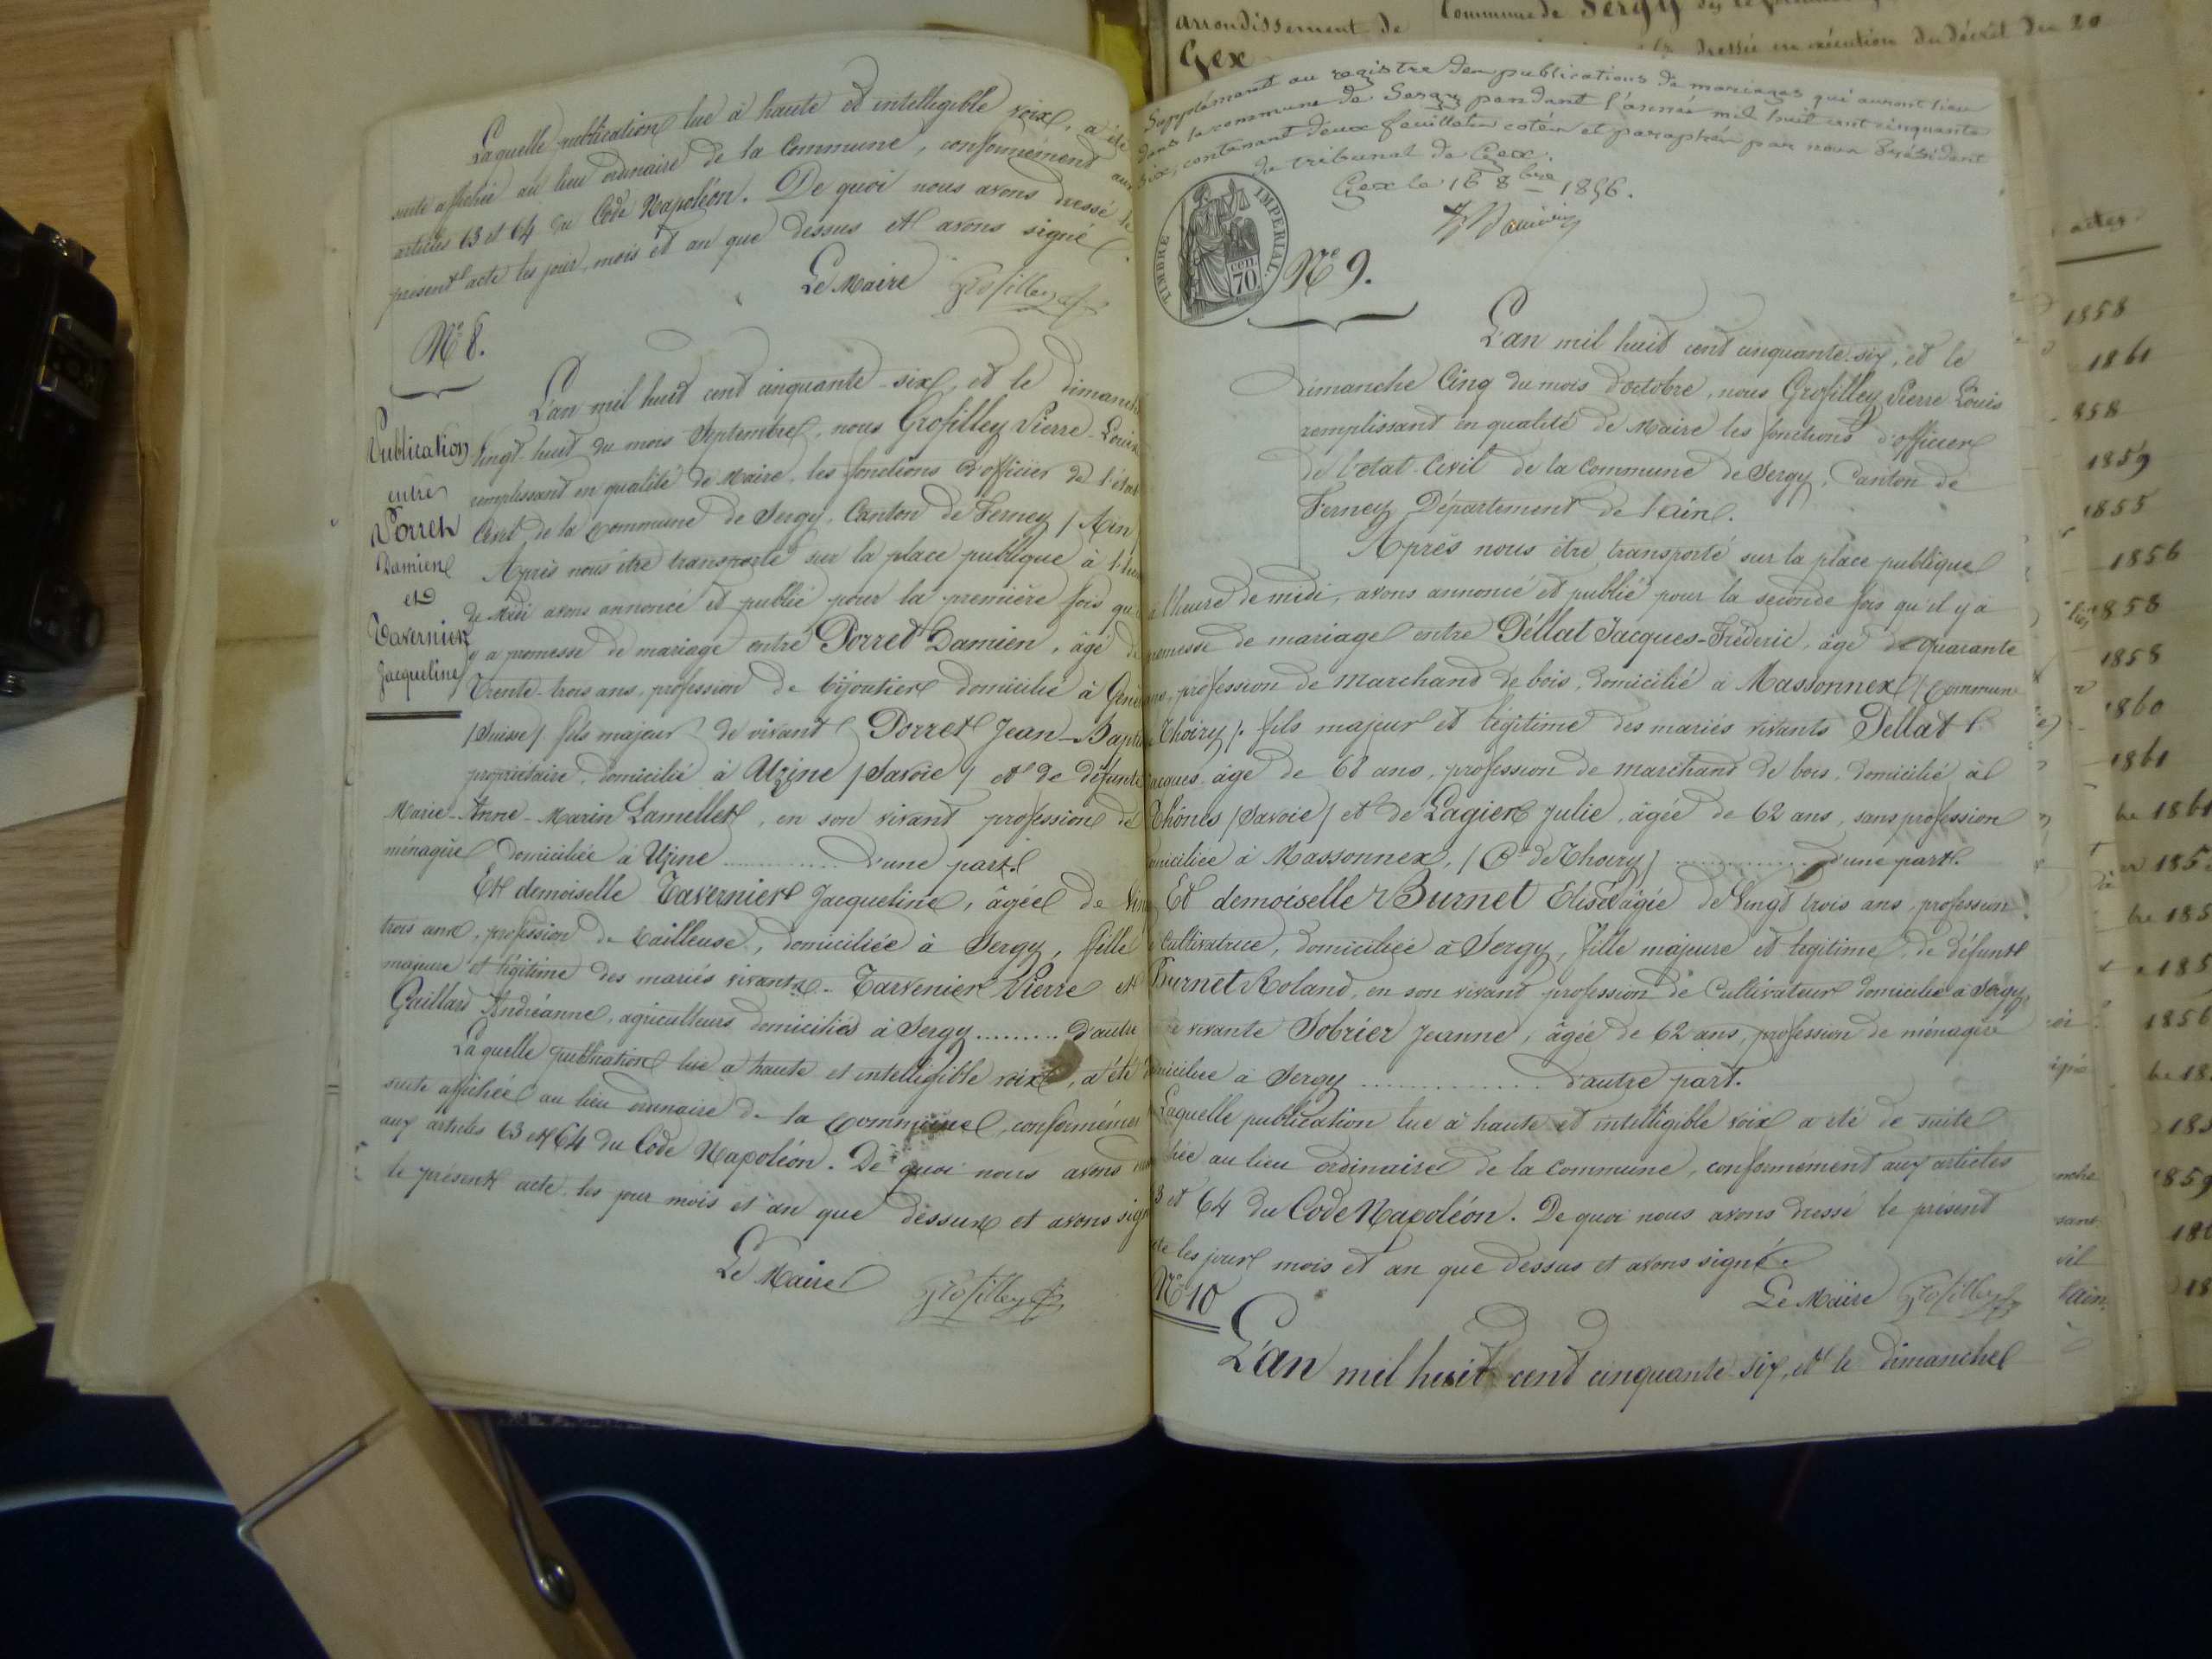 Laquelle publication lue à haute et intelligible voix, a été
suite affichée au lieu ordinaire de la Commune, conformément aux
articles 63 et 64 du Code Napoléon. De quoi nous avons dressé le
présent acte les jour, mois et an que dessus et avons signé.
Le Maire Grosfilley
N° 8.
Publication
entre
Porret
Damien
et
Tavernier
Jacqueline
L'an mil huit cent cinquante-six, et le dimanche
vingt-huit du mois Septembre, nous Grosfilley Pierre-Louis
remplissant en qualité de Maire, les fonctions d'officier de l'état
Civil de la Commune de Sergy, Canton de Ferney / Ain
Après nous être transporté sur la place publique à l'heu
de Midi avons annoncé et publié pour la première fois qu'
y a promesse de mariage entre Porret Damien, âgé de
Trente-trois ans, profession de bijoutier domicilié à Genè
/Suisse/ fils majeur de vivant Porret Jean-Bapti
propriétaire, domicilié à Uzine /Savoie/ et de défunte
Marie-Anne-Marin Lamellet, en son vivant profession de
ménagère domiciliée à Uzine ............ d'une part.
Et demoiselle Tavernier Jacqueline, âgée de vin
trois ans, profession de tailleuse, domiciliée à Sergy, fille
majeure et légitime des mariés vivants - Tarvenier Pierre et
Gaillard Andréanne, agriculteurs domiciliés à Sergy ......... d'autre
Laquelle publication lue à haute et intelligible voix, a été
suite affichée au lieu ordinaire de la Commune, conformémen
aux articles 63 et 64 du Code Napoléon. De quoi nous avons
le présent acte les jour mois et an que dessus et avons sign
Le Maire Grosfilley
arrondissement de Commune de Sergy
Gex dressée en exécution du décret du 20
Supplément au registre des publications de mariages qui auront lieu
dans la commune de Sergy pendant l'année mil huit cent cinquante
six, contenant deux feuillets cotés et paraphés par nous Président
du tribunal de Gex.
Gex le 16 8bre 1856.
TIMBRE IMPERIAL.
70 cen
N° 9.
L'an mil huit cent cinquante-six, et le
dimanche Cinq du mois d'octobre, nous Grosfilley Pierre Louis
remplissant en qualité de Maire les fonctions d'officier
de l'état-Civil de la Commune de Sergy, Canton de
Ferney Département de l'ain.
Après nous être transporté sur la place publique
à l'heure de midi, avons annoncé et publié pour la seconde fois qu'il y a
promesse de mariage entre Péllat Jacques-Fréderic, âgé de quarante
ans, profession de marchand de bois, domicilié à Massonnex /Commune
Thoiry/. fils majeur et légitime des mariés vivants Pellat
Jacques âgé de 68 ans, profession de marchand de bois, domicilié à
Thônes /Savoie/ et de Lagier Julie, âgée de 62 ans, sans profession
domiciliée à Massonnex, /Cne de Thoiry/ .............. d'une part.
Et demoiselle Burnet Elise âgée de Vingt trois ans, profession
Cultivatrice, domiciliée à Sergy, fille majeure et légitime de défunt
Burnet Roland, en son vivant profession de Cultivateur domicilié à Sergy,
vivante Sobrier Jeanne, âgée de 62 ans, profession de ménagère
domiciliée à Sergy ................ d'autre part.
Laquelle publication lue à haute et intelligible voix a été de suite
chée au lieu ordinaire de la Commune, conformément aux articles
3 et 64 du Code Napoléon. De quoi nous avons dressé le présent
cte les jour mois et an que dessus et avons signé.
Le Maire Grosfilley
N° 10
L'an mil huit cent cinquante-six, et le dimanche
actes
1858
1861
858
1859
1855
1856
1858
1858
1860
1861
bre 1861
185
bre 185
185
1856
185
1859
186